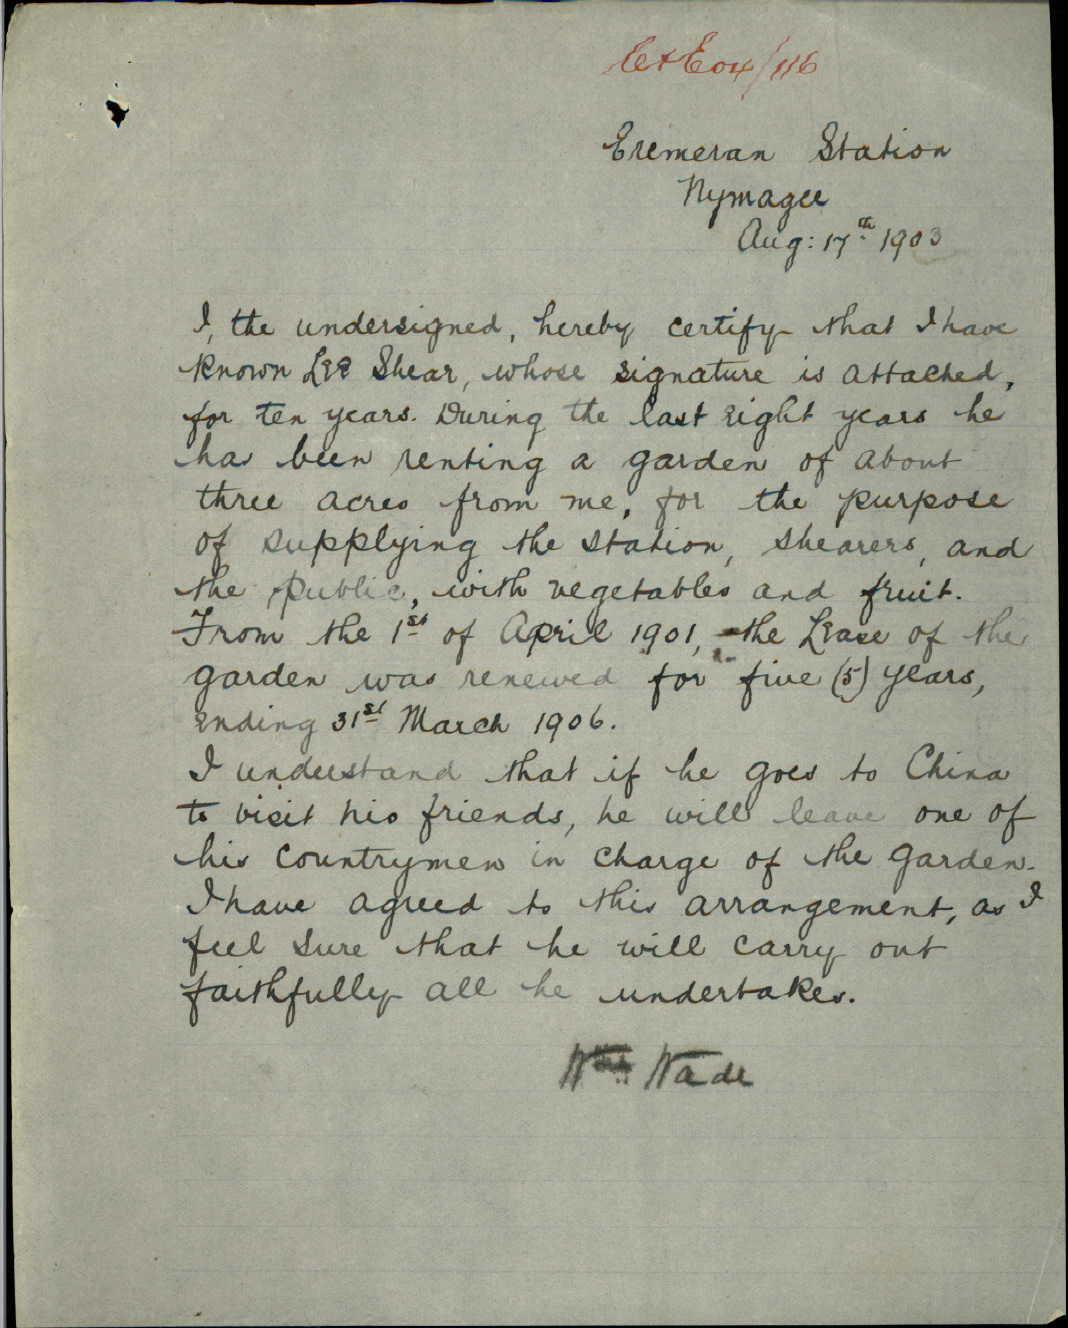 E & E 04/116
Eremeran Station
Nymagee
Aug: 17th 1903
I, the undersigned, hereby certify that I have
known Lee Shear, whose signature is attached,
for ten years. During the last eight years he
has been renting a garden of about
three acres from me, for the purpose
of supplying the station, shearers, and
the public, with vegetables and fruit.
From the 1st of April 1901, the Lease of the
garden was renewed for five (5) years,
ending 31st March 1906.
I understand that if he goes to China
to visit his friends, he will leave one of
his countrymen in charge of the garden.
I have agreed to this arrangement, as I
feel sure that he will carry out
faithfully all he undertakes.
Wm Wade